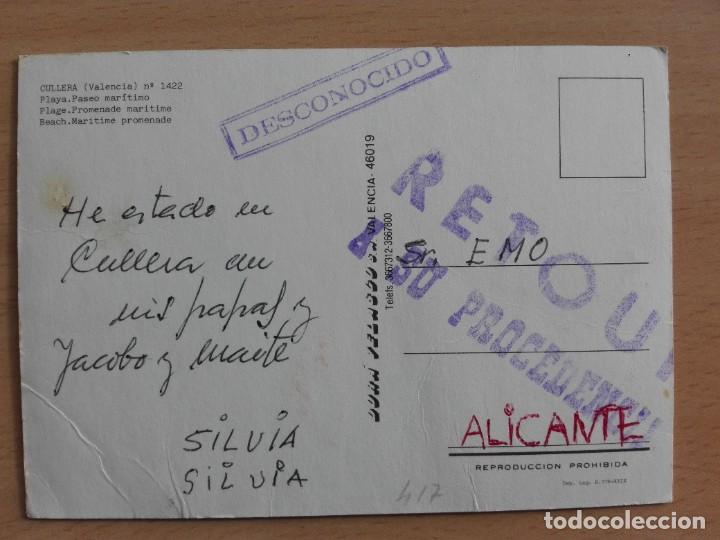 CULLERA (Valencia) nº 1422
Playa.Paseo marítimo
Plage.Promenade maritime
Beach.Maritime promenade
DESCONOCIDO
He estado en
Cullera con
mis papas y
Jacobo y Maite
SiLViA
SiLViA
VALENCIA - 46019
Telefs. 3667312-3667800
RETOUR
A SU PROCEDENCIA
Sr. EMO
ALiCANTE
REPRODUCCION PROHIBIDA
Dep. Leg. B.
417
todocoleccion.net